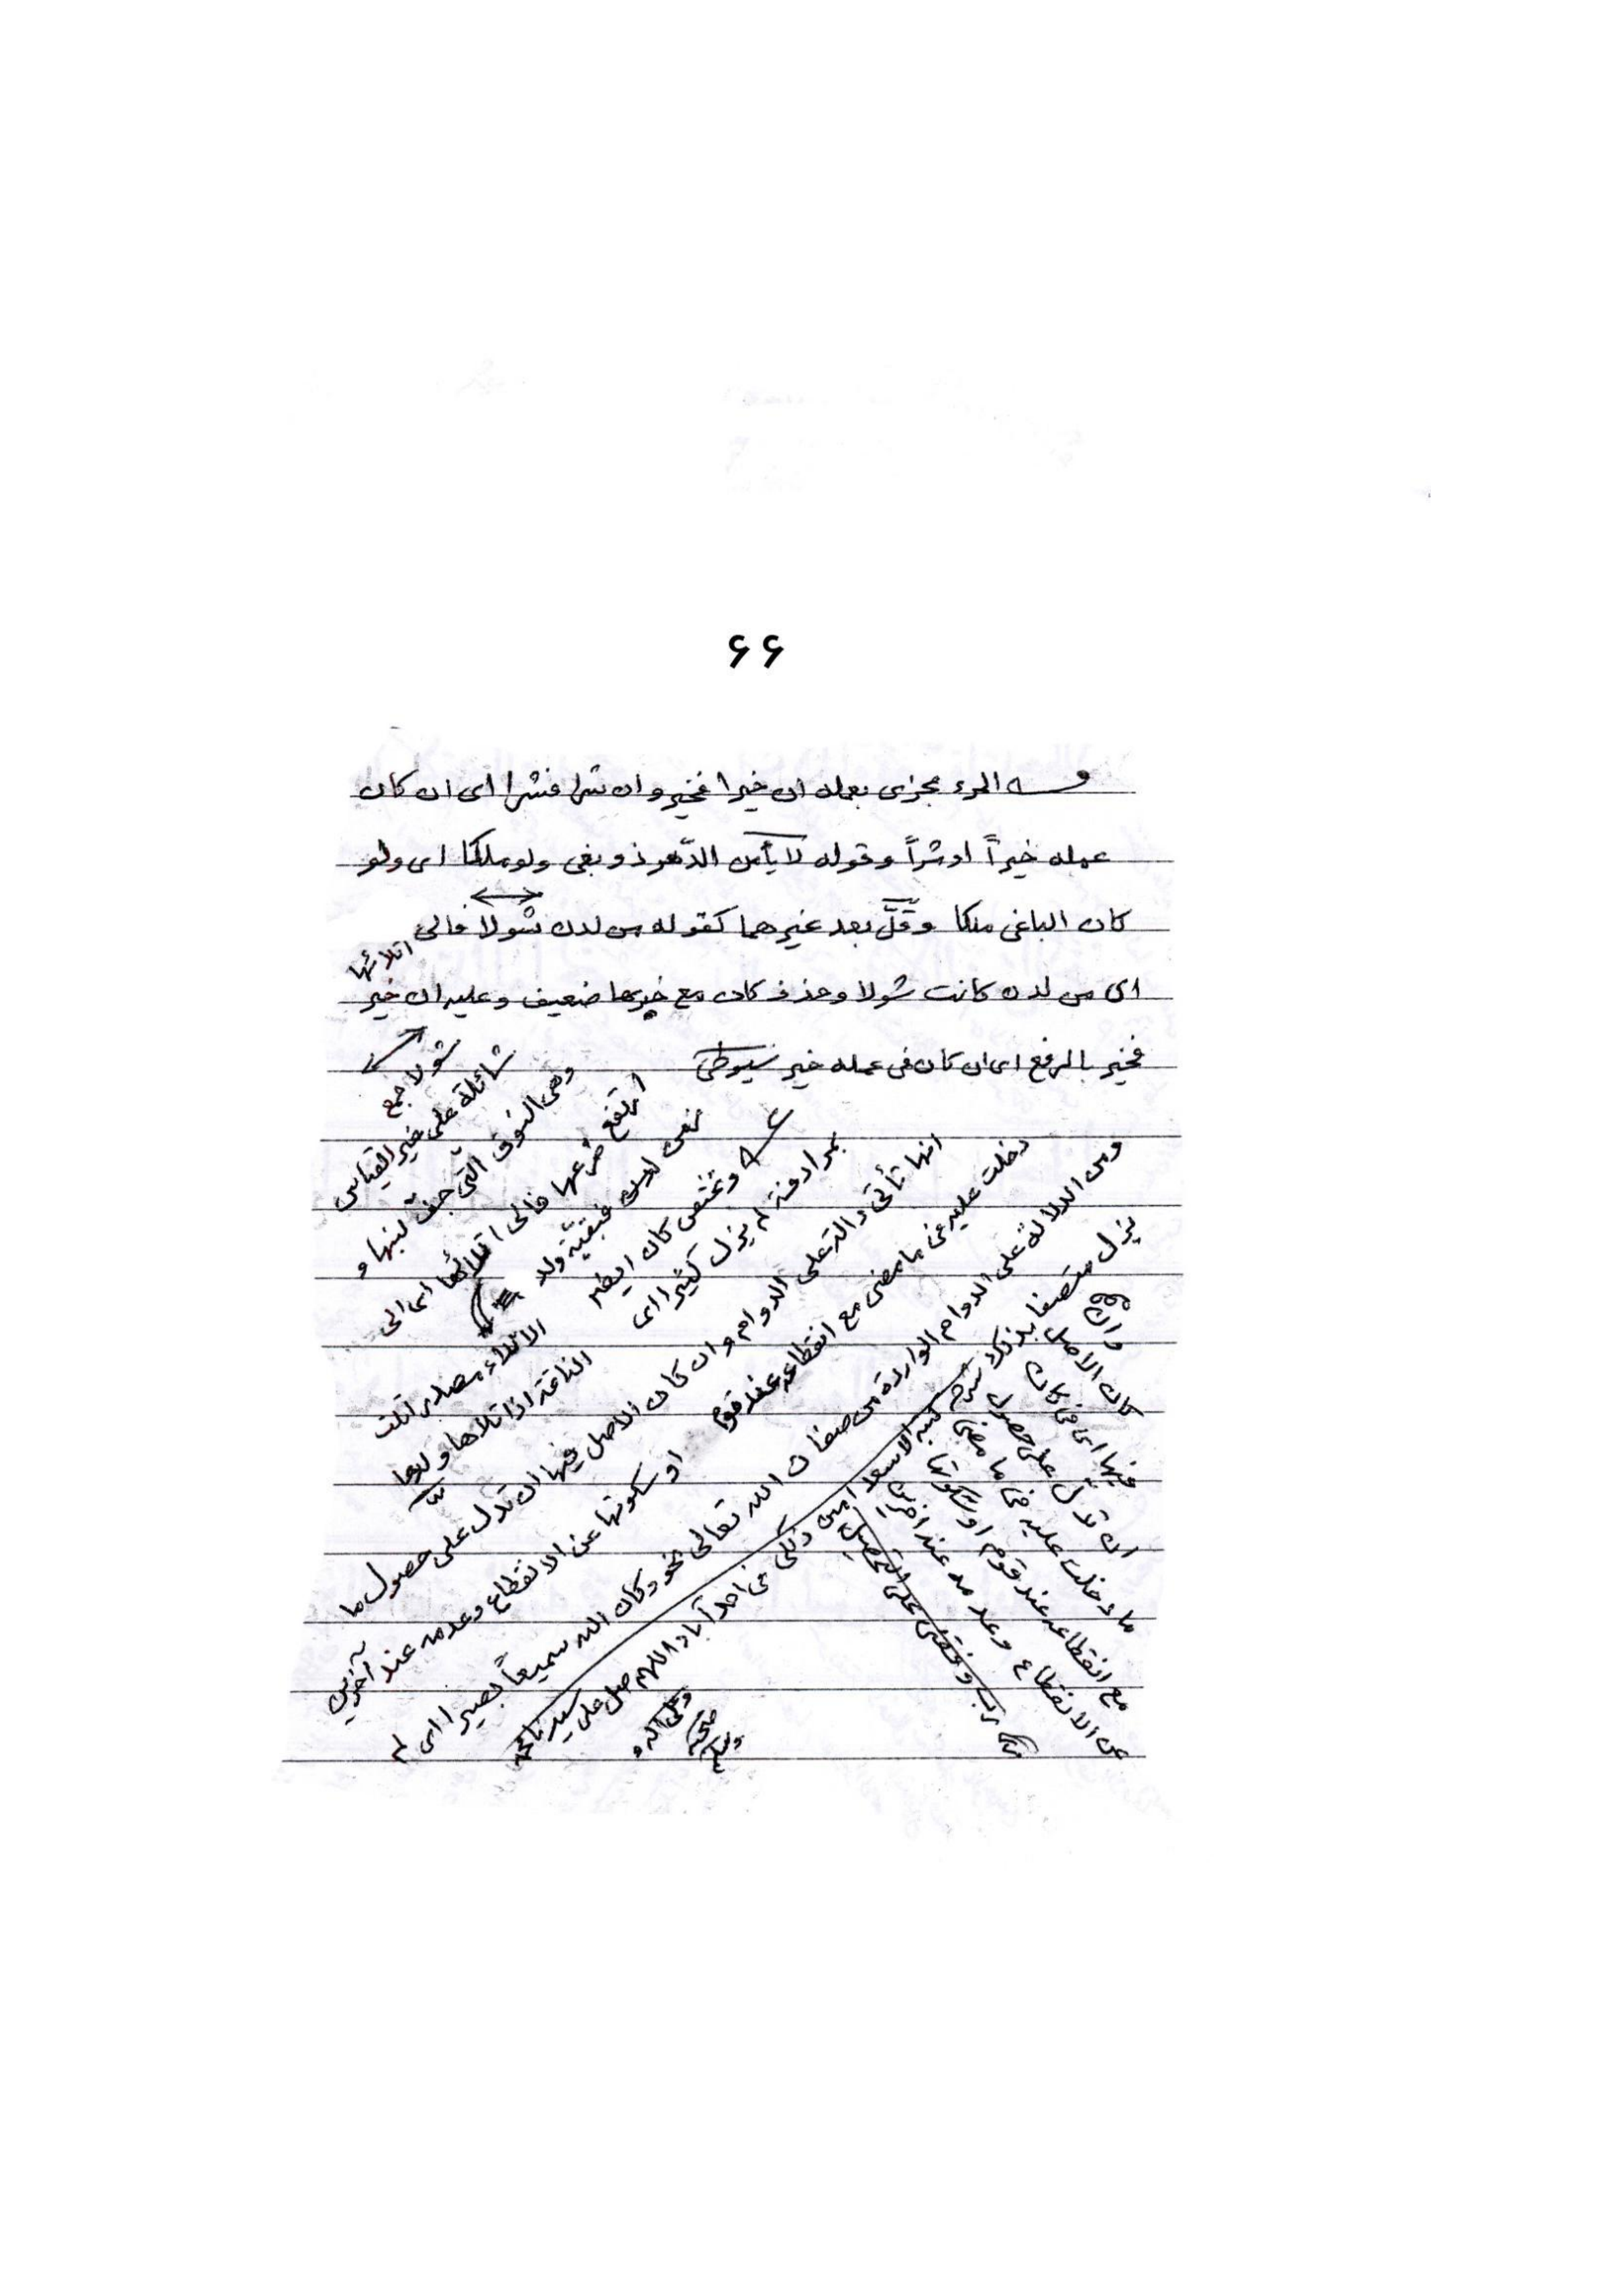 ۶۶
و المرء مجزى بعمله ان خيرا فخير وان شرا فشرا اى ان كان
عمله خيراً او شراً وقوله لا يأمن الدّهر ذو بغى ولو ملكا اى ولو
كان الباغى ملكا وقلّ بعد غيرهما كقوله من لدن شولا فالى
اتلائها
اى من لدن كانت شولا وحذف كان مع خبرها ضعيف وعليه ان خير
فخير بالرفع اى ان كان فى عمله خير سيوطى
شولا جمع
شائلة على غير القياس
وهى النوق التى جفّ لبنها و
ارتفع ضرعها فالى اتلائها اى الى
الاتلاء مصدر اتلت
الناقة اذا تلاها ولدها
وتختص كان ايضا
بمرادفة لم يزل كثيرا اى
انها تأتى دالة على الدوام وان كان الاصل فيها ان تدل على حصول ما
دخلت عليه فى ما مضى مع انقطاعه عند قوم
او سكوتها عن الانقطاع وعدمه عند آخرين
ومن الدلالة على الدوام الواردة من صفات الله تعالى نحو وكان الله سميعاً بصيرا اى لم
يزل متصفا بذلك
فى احمدآباد اللهم صل على سيدنا محمد
وعلى آله و
صحبه
وسلم
وان
كان الاصل
فيها اى فى كان
ان تدل على حصول
ما دخلت عليه فى ما مضى
مع انقطاعه عند قوم او سكوتها
عن الانقطاع وعدمه عند اخرين
رب وفقنى على التحصيل